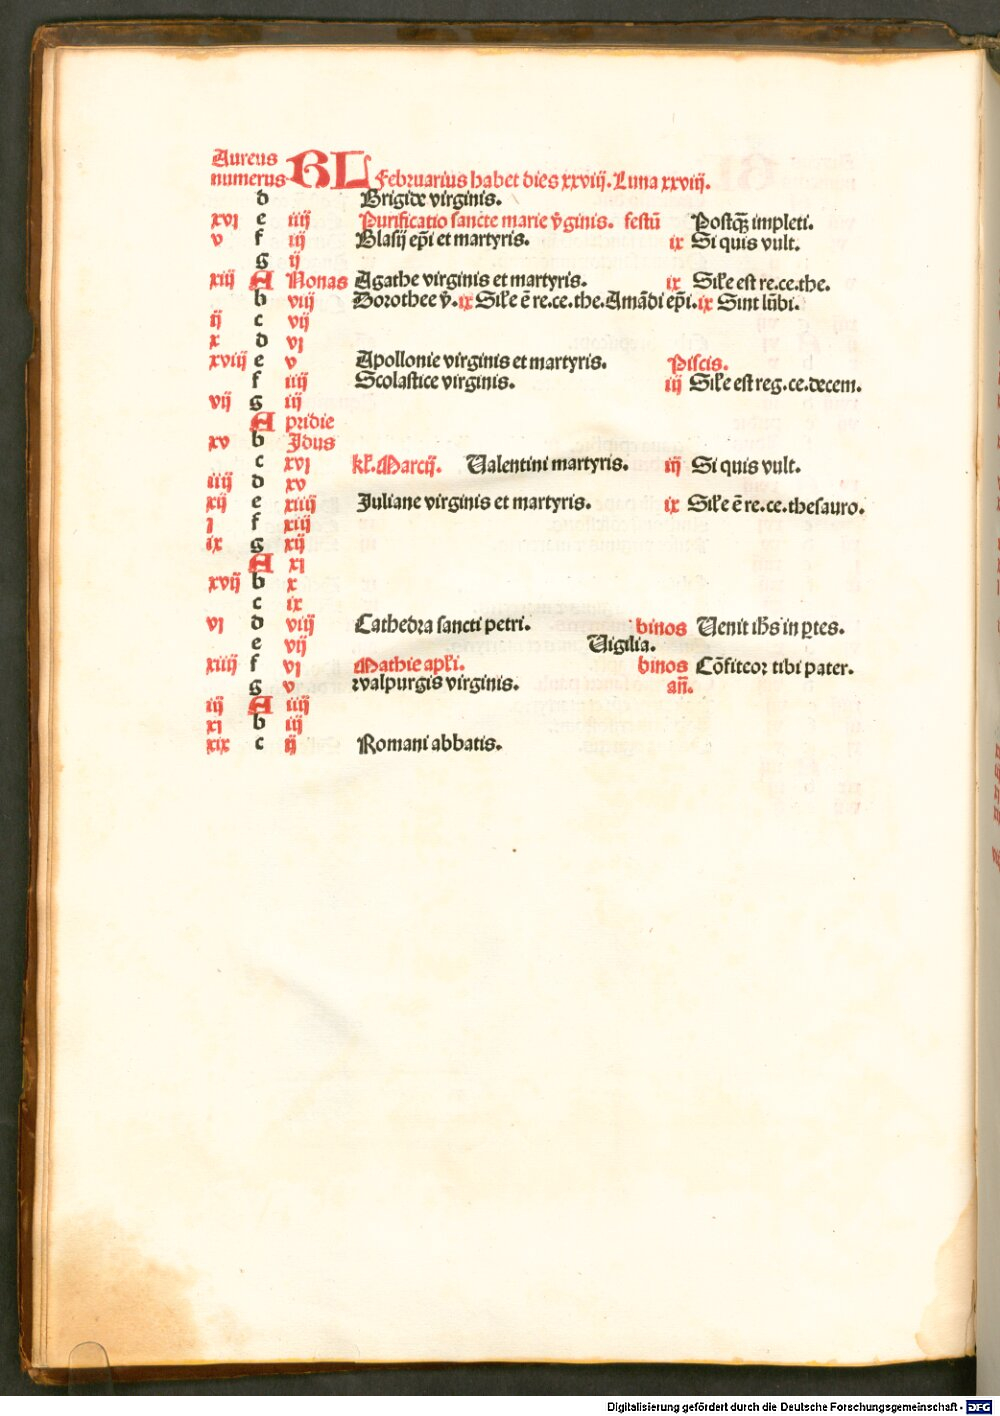 Aureus
numerus KL Februarius habet dies xxviij. Luna xxviij.
d Brigide virginis.
xvj e iiij Purificatio sancte marie v̄ginis. festū Postq̄ꝫ impleti.
v f iij Blasij ep̄i et martyris. ix Si quis vult.
g ij
xiij A Nonas Agathe virginis et martyris. ix Sil'e est re.ce.the.
b viij Dorothee v̄. ix Sil'e ē re.ce.the. Amādi ep̄i. ix Sint lūbi.
ij c vij
x d vj
xviij e v Apollonie virginis et martyris. Piscis.
f iiij Scolastice virginis. iij Sil'e est reg.ce.decem.
vij g iij
A pridie
xv b Idus
c xvj kl'. Marcij. Valentini martyris. iij Si quis vult.
iiij d xv
xij e xiiij Juliane virginis et martyris. ix Sil'e ē re.ce.thesauro.
j f xiij
ix g xij
A xj
xvij b x
c ix
vj d viij Cathedra sancti petri. binos Venit ih̄s in ꝑtes.
e vij Vigilia.
xiiij f vj Mathie apl'i. binos Cōfiteor tibi pater.
g v walpurgis virginis. an̄.
iij A iiij
xj b iij
xix c ij Romani abbatis.
Digitalisierung gefördert durch die Deutsche Forschungsgemeinschaft - DFG